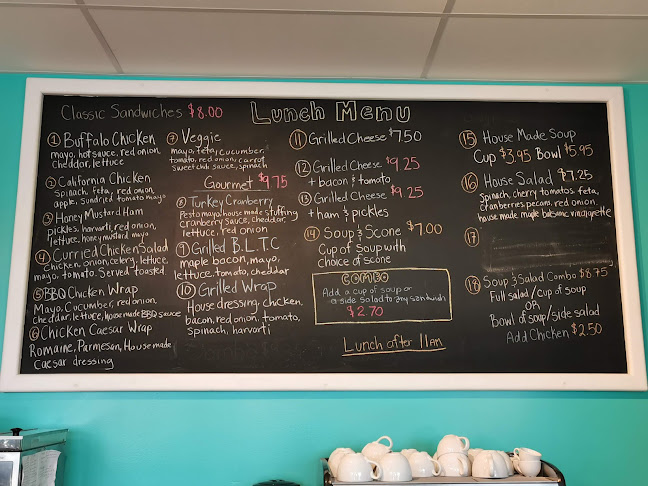 Lunch Menu
Classic Sandwiches $8.00
1 Buffalo Chicken
mayo, hot sauce, red onion,
Cheddar, lettuce
2 California Chicken
spinach, feta, red onion
apple, sundried tomato mayo
3 Honey Mustard Ham
pickles, harvorti, red onion,
lettuce, honey mustard mayo
4 Curried Chicken Salad
chicken, onion, celery, lettuce,
mayo, tomato. Served toasted
5 BBQ Chicken Wrap
Mayo, Cucumber, red onion,
cheddar, lettuce, house made BBQ sauce
6 Chicken Caesar Wrap
Romaine, Parmesan, House made
Caesar dressing
7 Veggie
mayo, feta, cucumber,
tomato, red onion, carrot
sweet chili sauce, spinach
Gourmet $9.75
8 Turkey Cranberry
Pesto mayo, house made stuffing
cranberry sauce, cheddar,
lettuce, red onion
9 Grilled B.L.T.C
maple bacon, mayo,
lettuce, tomato, cheddar
10 Grilled Wrap
House dressing, chicken,
bacon, red onion, tomato,
spinach, harvorti
11 Grilled Cheese $7.50
12 Grilled Cheese $9.25
+ bacon & tomato
13 Grilled Cheese $9.25
+ ham & pickles
14 Soup & Scone $7.00
Cup of Soup with
choice of scone
COMBO
Add a cup of soup or
a side salad to any sandwich
$2.70
Lunch after 11am
15 House Made Soup
Cup $3.95 Bowl $5.95
16 House Salad $7.25
Spinach, cherry tomatoes, feta,
cranberries, pecans, red onion,
house made maple balsamic vinaigrette
17
18 Soup & Salad Combo $8.75
Full salad/cup of soup
OR
Bowl of soup/side salad
Add Chicken $2.50